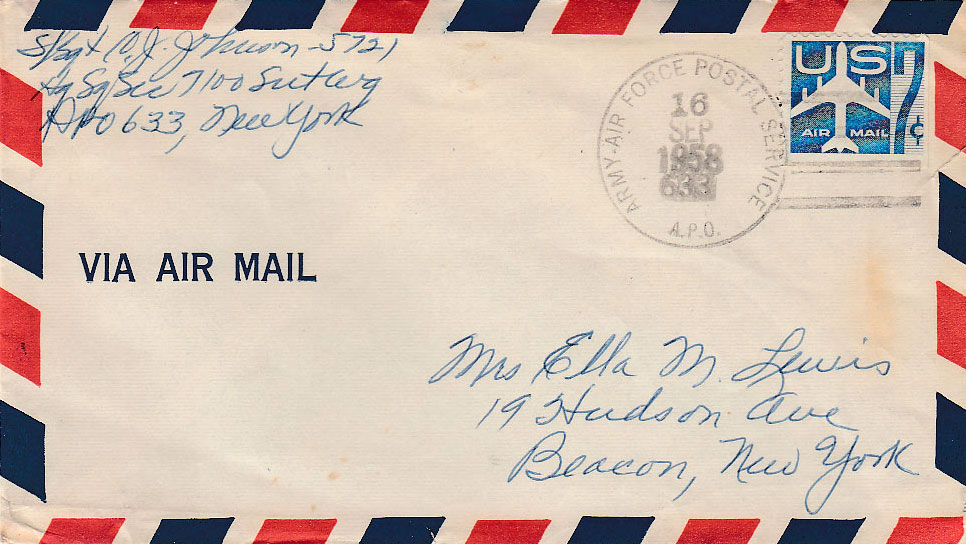 S/Sgt C. J. Johnson -5721
Hq Sq Sec 7100 Sut Grp
APO 633, New York
ARMY-AIR FORCE POSTAL SERVICE
16
SEP
1958
633
A.P.O.
US
7¢
AIR MAIL
VIA AIR MAIL
Mrs Ella M. Lewis
19 Hudson Ave
Beacon, New York